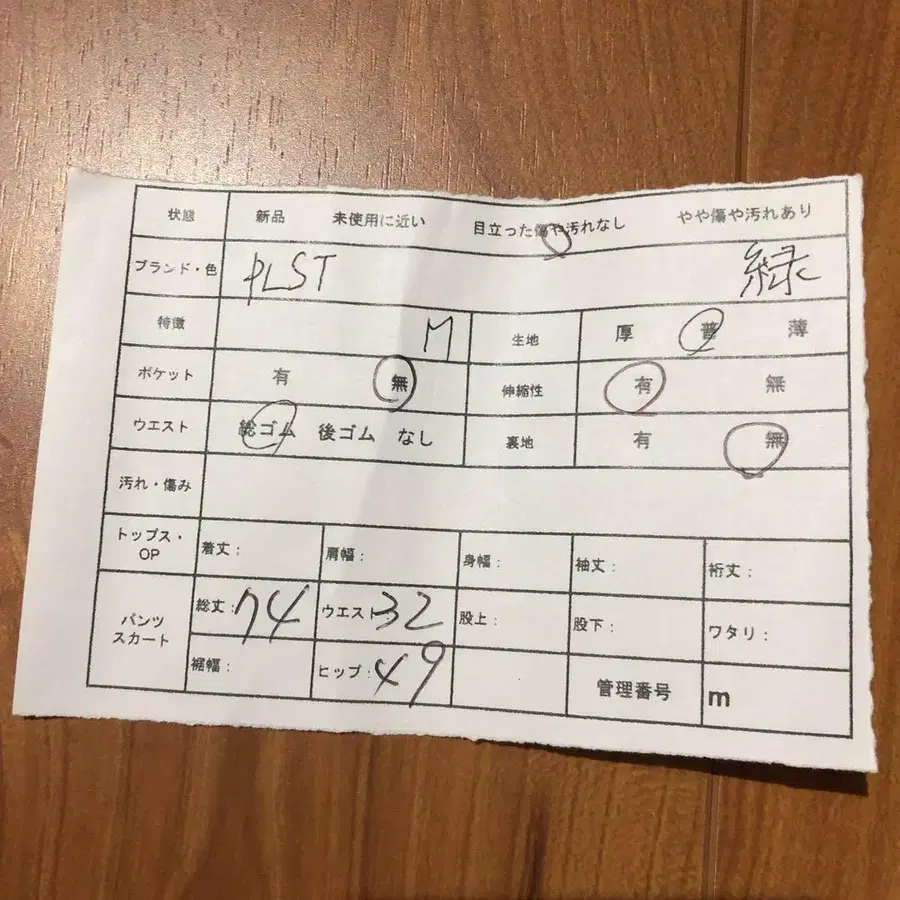 状態 新品 未使用に近い 目立った傷や汚れなし やや傷や汚れあり
ブランド・色 PLST 緑
特徴 M 生地 厚 普 薄
ポケット 有 無 伸縮性 有 無
ウエスト 総ゴム 後ゴム なし 裏地 有 無
汚れ・傷み
トップス・OP 着丈: 肩幅: 身幅: 袖丈: 裄丈:
パンツ スカート 総丈: 74 ウエスト 32 股上: 股下: ワタリ:
裾幅: ヒップ: 49 管理番号 m